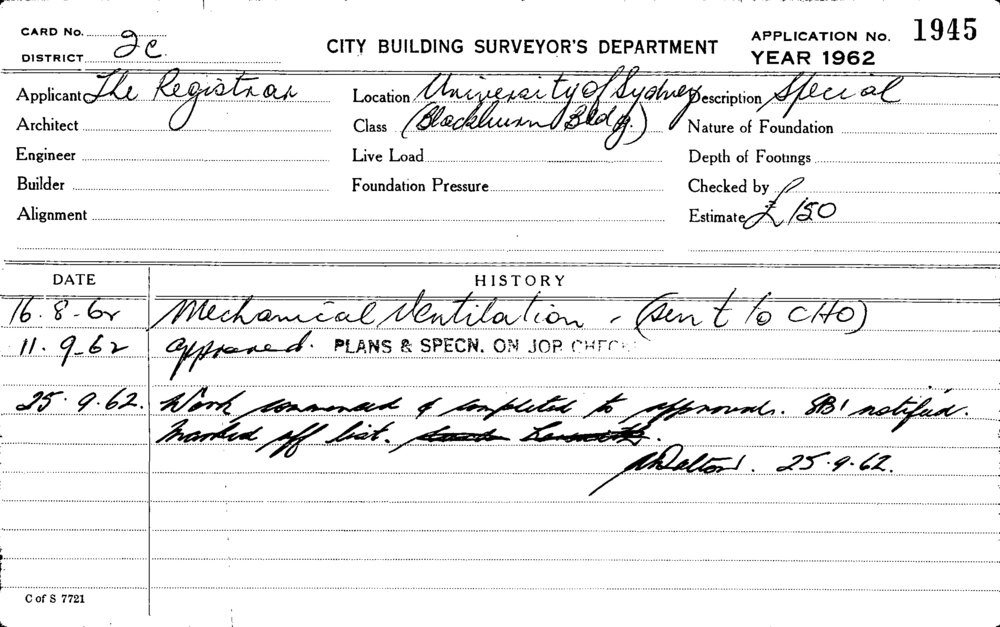 CARD No.
DISTRICT 2c.
CITY BUILDING SURVEYOR'S DEPARTMENT
APPLICATION No. 1945
YEAR 1962
Applicant The Registrar Location University of Sydney Description Special
Architect Class (Blackburn Bldg.) Nature of Foundation
Engineer Live Load Depth of Footings
Builder Foundation Pressure Checked by
Alignment Estimate £150
DATE HISTORY
16.8.62 Mechanical Ventilation - (sent to CHO)
11.9.62 approved. PLANS & SPECN. ON JOB CHEC
25.9.62. Work commenced & completed to approval. notified.
Marked off list.
25.9.62.
C of S 7721